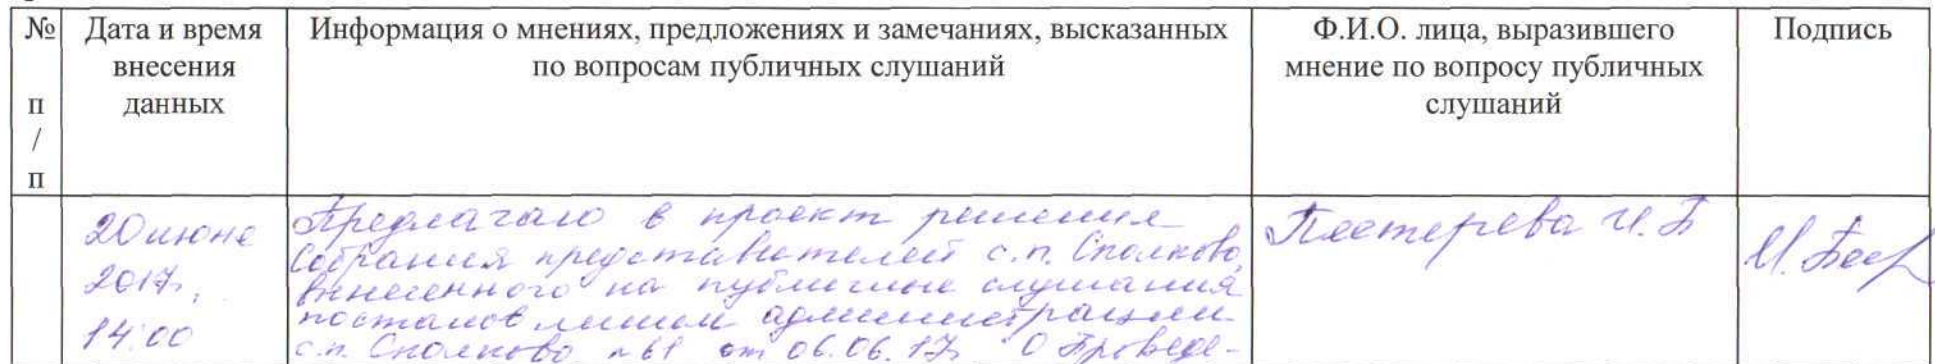 № п / п
Дата и время внесения данных
Информация о мнениях, предложениях и замечаниях, высказанных
по вопросам публичных слушаний
Ф.И.О. лица, выразившего
мнение по вопросу публичных
слушаний
Подпись
20 июня
2017г,
14:00
Предлагаю в проект решения
Собрания представителей с.п. Сполково,
вынесенного на публичные слушания
постановлением администрации
с.п. Сполково №61 от 06.06.17г О проведе-
И. Б
И.